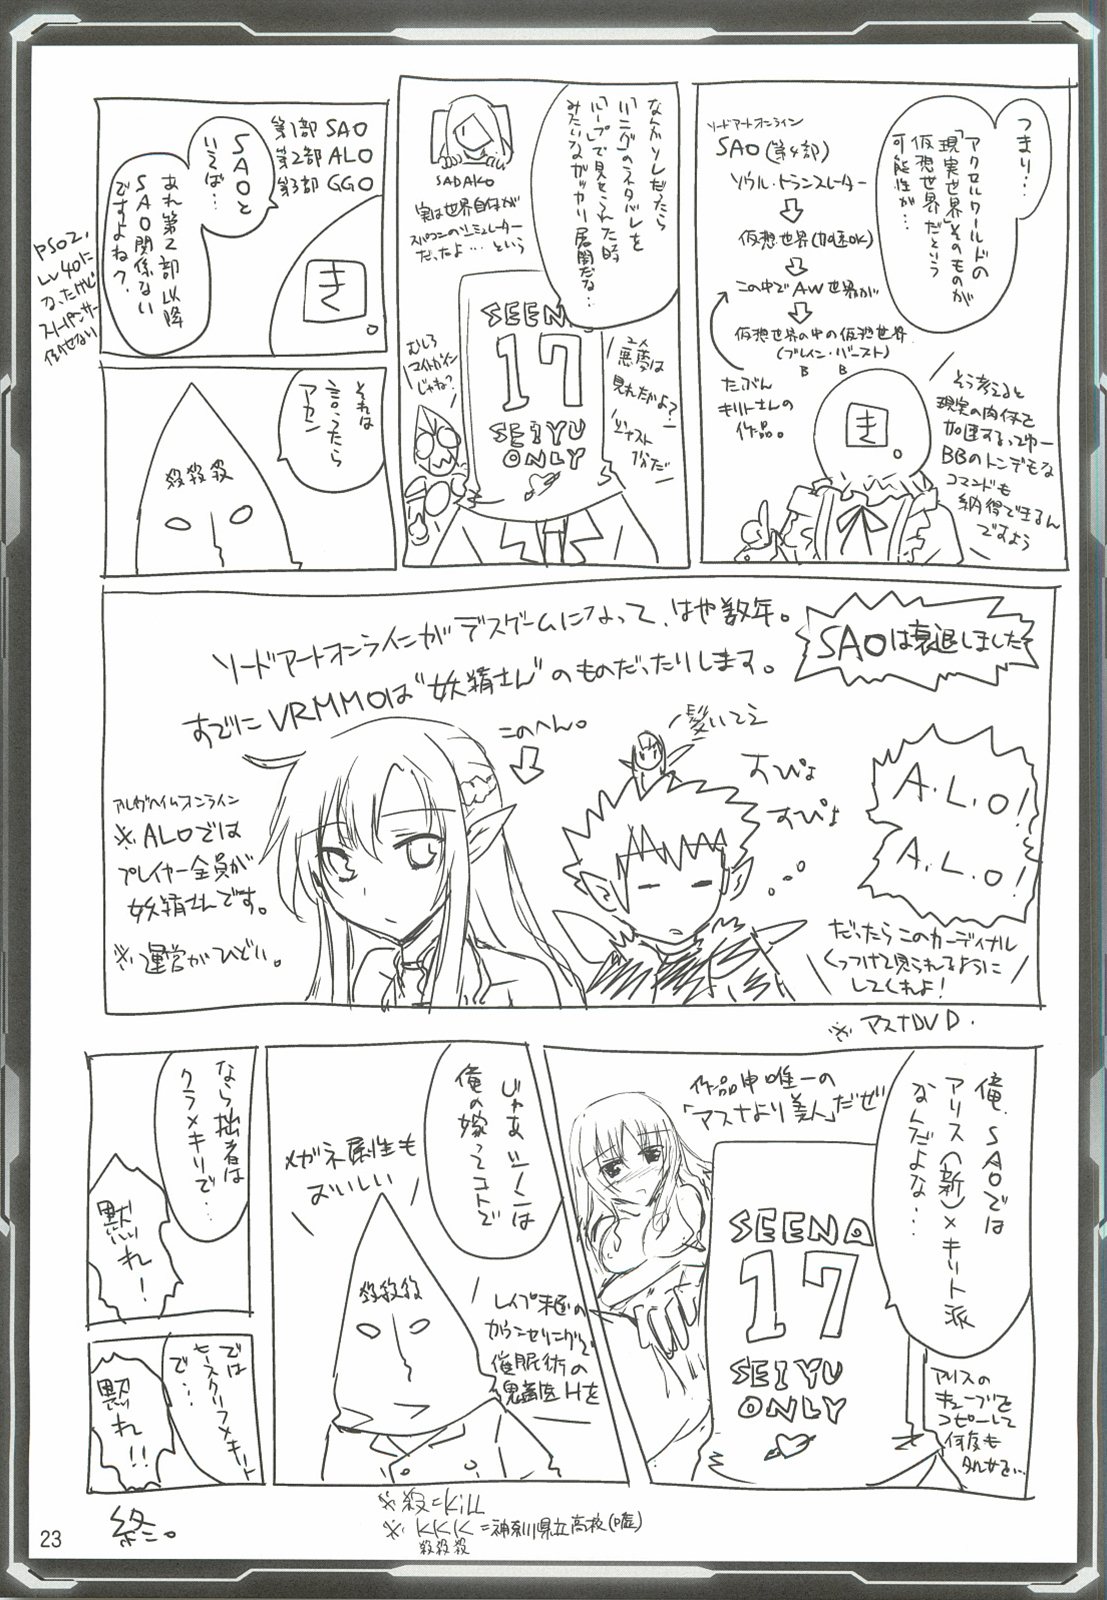 つまり…、
アクセルワールドの
「現実世界」そのものが
仮想世界だという
可能性が…
ソードアートオンライン
SAO(第4部)
ソウル・トランスレーター
仮想世界(加速OK)
この中でAW世界が
仮想世界の中の仮想世界
(ブレイン・バースト)
B B
たぶん
キリトさんの
作品。
き。
そう考えると
現実の肉体を
加速するってゆー
BBのトンデモな
コマンドも
納得できるん
ですよう
なんかソレだったら
「リング」のネタバレを
「ループ」で見せられた時
みたいなガッカリ展開だな…
SADAKO
実は世界自体が
スパコンのシミュレーター
だったよ…という
SEENA
17
SEIYU
ONLY
むしろ
マイトガイン
じゃね?
悪夢は
見れたかよ?
ジャスト
1分だ
第1部 SAO
第2部 ALO
第3部 GGO
SAOと
いえば…
き。
あれ第2部以降
SAO関係ない
ですよね?
PSO2、
Lv40に
なったけど
倒せない
それは
言ったら
アカン
殺殺殺
SAOは衰退しました
ソードアートオンラインがデスゲームになって、はや数年。
すでにVRMMOは“妖精さん”のものだったりします。
このへん。
髪いてえ
すぴょ
すぴょ
A.L.O!
A.L.O!
アルヴヘイムオンライン
※ALOでは
プレイヤー全員が
妖精さんです。
※運営がひどい。
だったらこのカーディナル
くっつけて見られるように
してくれよ!
※アスナDVD.
俺、SAOでは
アリス(新)×キリト派
なんだよな…
作品中唯一の
「アスナより美人」だぜ
SEENA
17
SEIYU
ONLY
アリスの
キューブを
コピーして
何度も
じゃあシノンは
俺の嫁ってコトで
メガネ属性も
おいしい
殺殺殺
レイプ未遂の
カウンセリングで
催眠術の
鬼畜医Hを
なら拙者は
クラ×キリで…
黙れ!
では
ヒースクリフ×キリト
で…
黙れ!!
※殺=Kill
※KKK=神奈川県立高校(嘘)
殺殺殺
終。
23